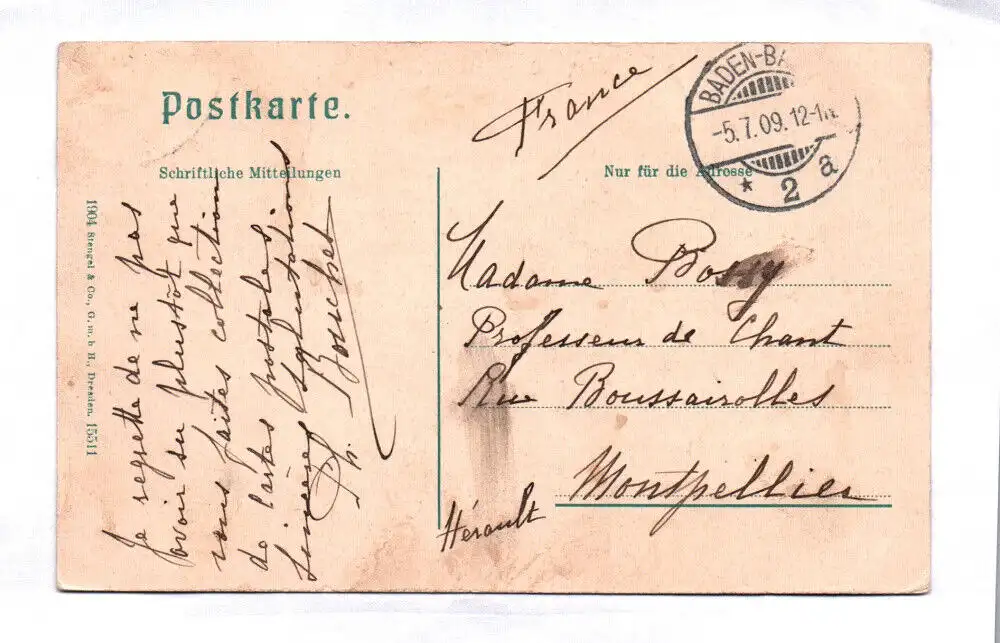 Postkarte.
Schriftliche Mitteilungen
Nur für die Adresse
BADEN-BA
-5.7.09. 12-1
* 2 a
France
Madame Bossy
Professeur de Chant
Rue Boussairolles
Montpellier
Hérault
Je regrette de ne pas
avoir su plustôt que
vous faites collection
de cartes postales
Sincères Salutations
Bouchet
1904 Stengel & Co., G. m. b. H., Dresden. 15511